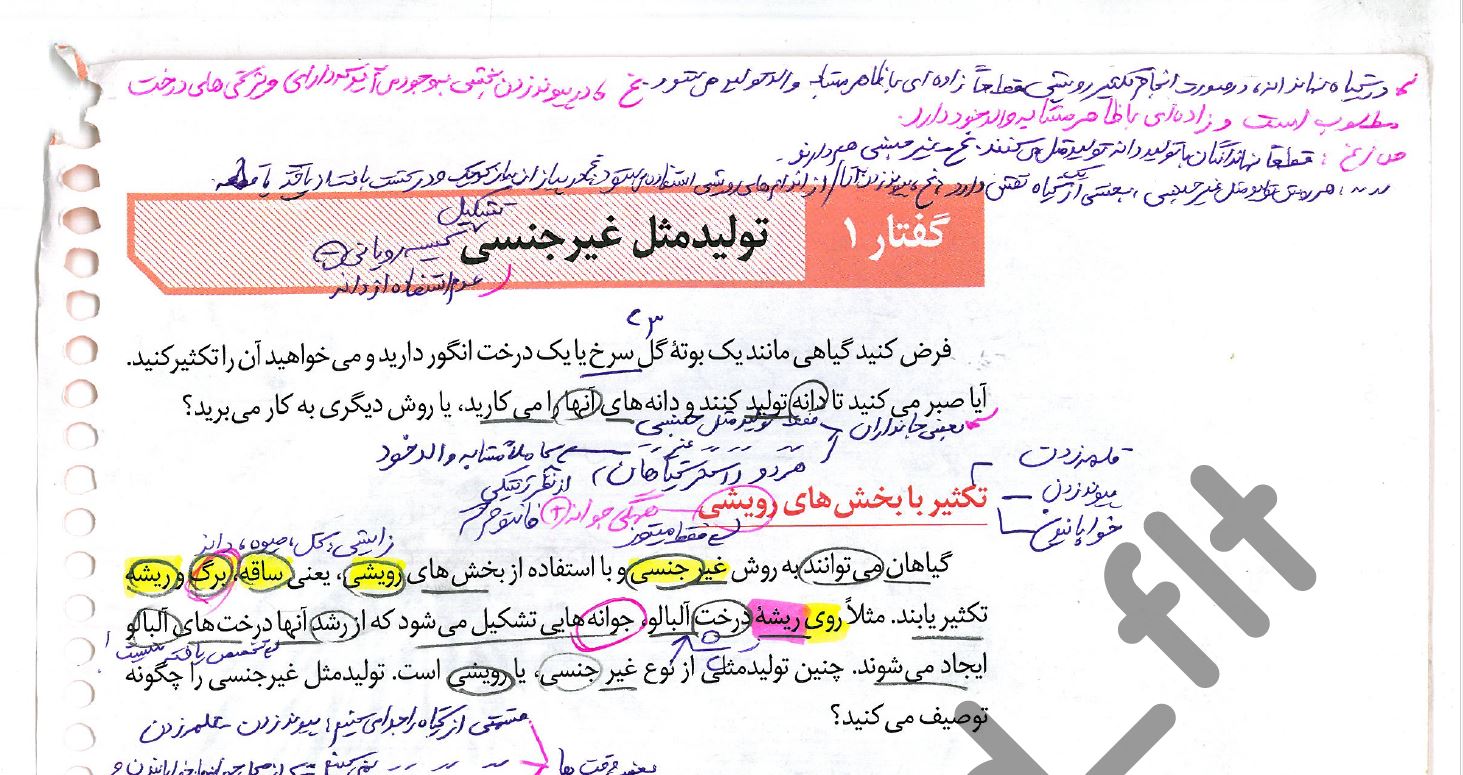 در گیاه نهاندانه، در صورت انجام تکثیر رویشی قطعاً زاده‌ای با ظاهر مشابه والد تولید می‌شود. نخ در پیوند زدن بخشی بوجود می‌آید که دارای ویژگی‌های درخت
مطلوب است و زاده‌ای با ظاهر مشابه والد خود دارد.
قطعاً نهاندانگان با تولید دانه تولید مثل می‌کنند. نخ غیرجنسی هم دارند.
هر روش تولید مثل غیرجنسی، بخشی از یک گیاه نقش دارد
گفتار ۱
تولیدمثل غیرجنسی
تشکیل
کیسه رویانی
عدم استفاده از دانه
فرض کنید گیاهی مانند یک بوتهٔ گل سرخ یا یک درخت انگور دارید و می‌خواهید آن را تکثیر کنید.
آیا صبر می‌کنید تا دانه تولید کنند و دانه‌های آنها را می‌کارید، یا روش دیگری به کار می‌برید؟
بعضی جانداران فقط تولید مثل جنسی
غیر
هر دو اکثر گیاهان
کاملاً مشابه والد خود
از نظر ژنتیکی
قلمه زدن
پیوند زدن
خوابانیدن
تکثیر با بخش‌های رویشی
همگی جوانه
فقط میتوز
زایشی: گل، میوه، دانه
گیاهان می‌توانند به روش غیر جنسی و با استفاده از بخش های رویشی، یعنی ساقه، برگ و ریشه
تکثیر یابند. مثلاً روی ریشهٔ درخت آلبالو، جوانه‌هایی تشکیل می‌شود که از رشد آنها درخت‌های آلبالو
ایجاد می‌شوند. چنین تولیدمثلی از نوع غیر جنسی، یا رویشی است. تولیدمثل غیرجنسی را چگونه
تخصص یافته نیست
توصیف می‌کنید؟
قسمتی از گیاه را جدا می‌کنیم: پیوند زدن - قلمه زدن
بعضی وقت ها